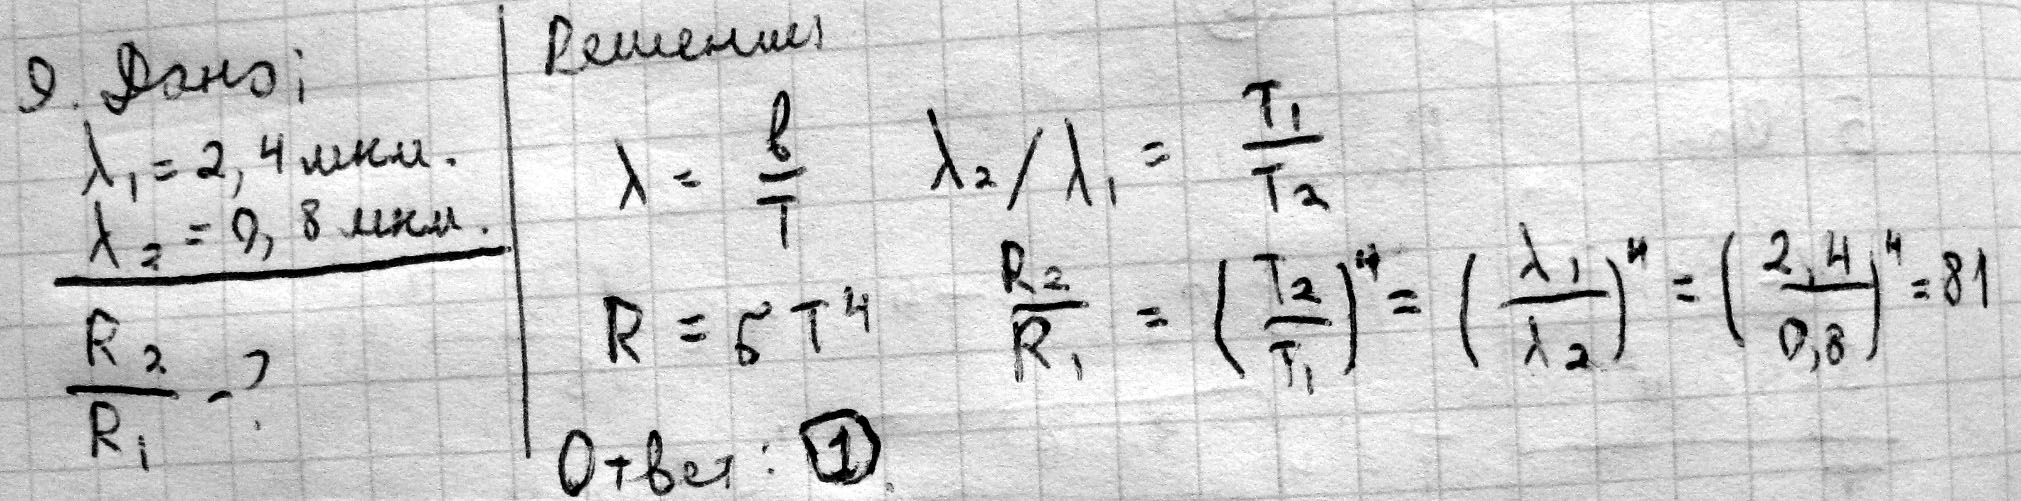 9. Дано:
λ₁ = 2,4 мкм.
λ₂ = 0,8 мкм.
R₂/R₁ - ?
Решение:
λ = b/T   λ₂/λ₁ = T₁/T₂
R = σT⁴   R₂/R₁ = (T₂/T₁)⁴ = (λ₁/λ₂)⁴ = (2,4/0,8)⁴ = 81
Ответ: 1.